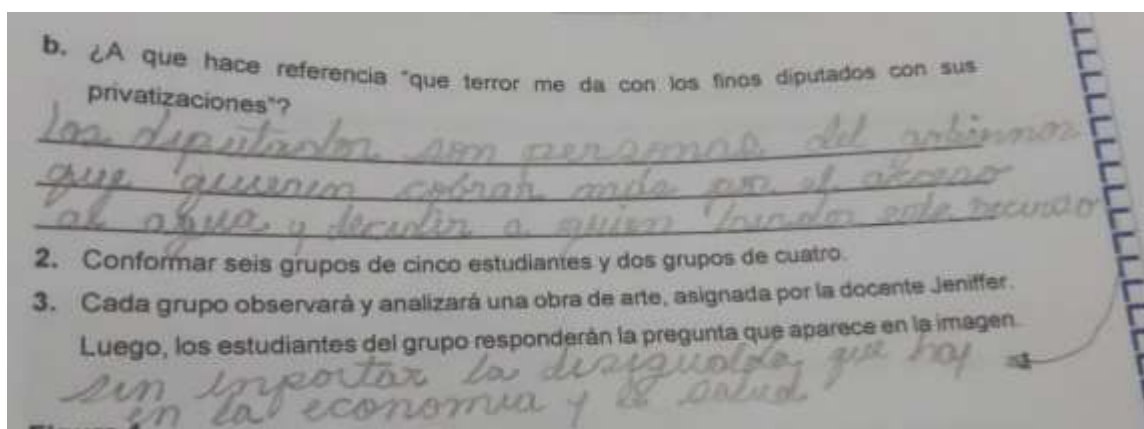 b. ¿A que hace referencia "que terror me da con los finos diputados con sus
privatizaciones"?
Los diputados son personas del gobierno
que quieren cobrar más por el acceso
al agua y decidir a quien brindar este recurso
2. Conformar seis grupos de cinco estudiantes y dos grupos de cuatro.
3. Cada grupo observará y analizará una obra de arte, asignada por la docente Jeniffer.
Luego, los estudiantes del grupo responderán la pregunta que aparece en la imagen.
sin importar la desigualda que hay
en la economia y salud